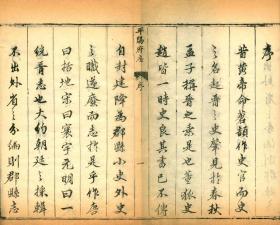 序
昔黄帝命蒼頡作史官而史
之名起晉之史乘見於春秋
孟子稱晉之乘是也董狐史
趙皆一時史良其書已不傳
自封建降為郡縣小史外史
之職遂廢而志於是乎作唐
曰括地宋曰寰宇元明曰一
統晉志也大約朝廷之採輯
不出外省之分緝則郡縣志
平陽府志
序
一